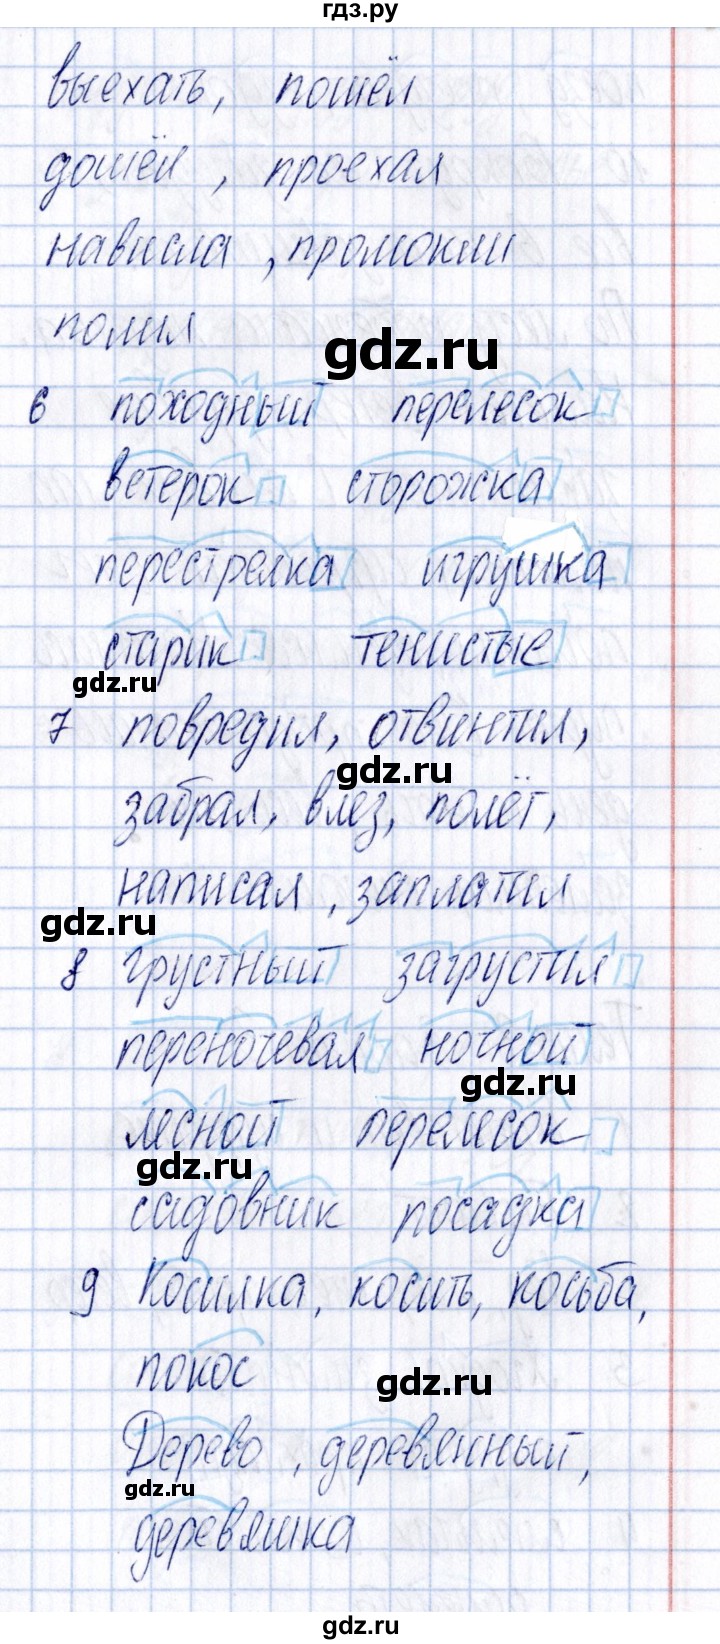 гдз.ру
выехать, пошёл
дошёл, проехал
нависла, промокли
полил
gdz.ru
6 походный перелесок
ветерок сторожка
перестрелка игрушка
старик тенистые
gdz.ru
7 повредил, отвинтил,
gdz.ru
забрал, влез, полёт,
написал, заплатил
gdz.ru
8 грустный загрустил
переночевал ночной
gdz.ru
лесной перелесок
gdz.ru
садовник посадка
9 Косилка, косить, косьба,
покос
gdz.ru
Дерево, деревянный,
gdz.ru
деревяшка
gdz.ru